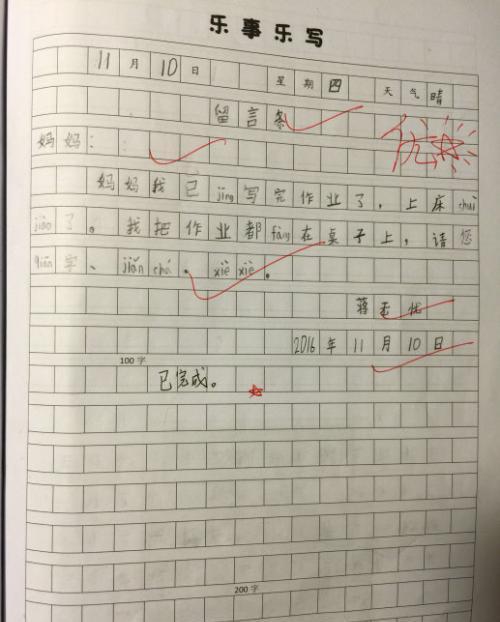 乐事乐写
11月10日 星期四 天气晴
留言条
优
妈妈：
妈妈我已jīng写完作业了，上床shuì
jiào了。我把作业都fàng在桌子上，请您
qiān字、jiǎn chá。xiè xiè。
蒋 优
2016年11月10日
100字
已完成。
200字